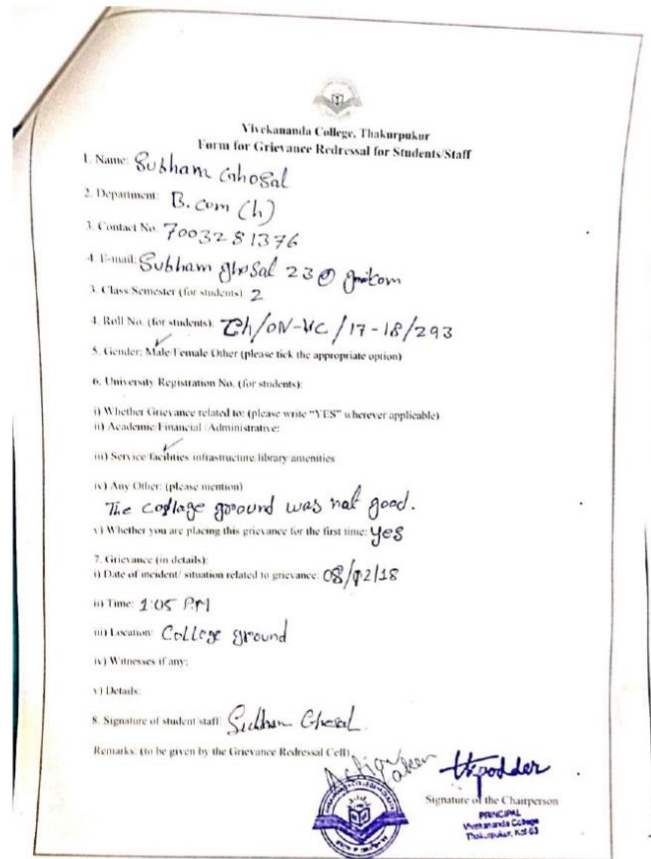 Vivekananda College, Thakurpukur
Form for Grievance Redressal for Students/Staff
1. Name: Subham Ghosal
2. Department: B.com (h)
3. Contact No. 7003281376
4. E-mail: Subham ghosal 23@
3. Class Semester (for students) 2
4. Roll No. (for students): /ON-VC/17-18/293
5. Gender: Male/Female Other (please tick the appropriate option)
6. University Registration No. (for students):
i) Whether Grievance related to: (please write "YES" wherever applicable)
ii) Academic Financial Administrative:
iii) Service facilities infrastructure/library amenities
iv) Any Other: (please mention)
The collage ground was not good.
v) Whether you are placing this grievance for the first time: yes
7. Grievance (in details):
i) Date of incident/ situation related to grievance: 08/02/18
ii) Time: 1:05 PM
iii) Location: College ground
iv) Witnesses if any:
v) Details:
8. Signature of student staff: Subham Ghosal
Remarks: (to be given by the Grievance Redressal Cell)
Action taken
Signature of the Chairperson
PRINCIPAL
Vivekananda College
Thakurpukur, Kol-63